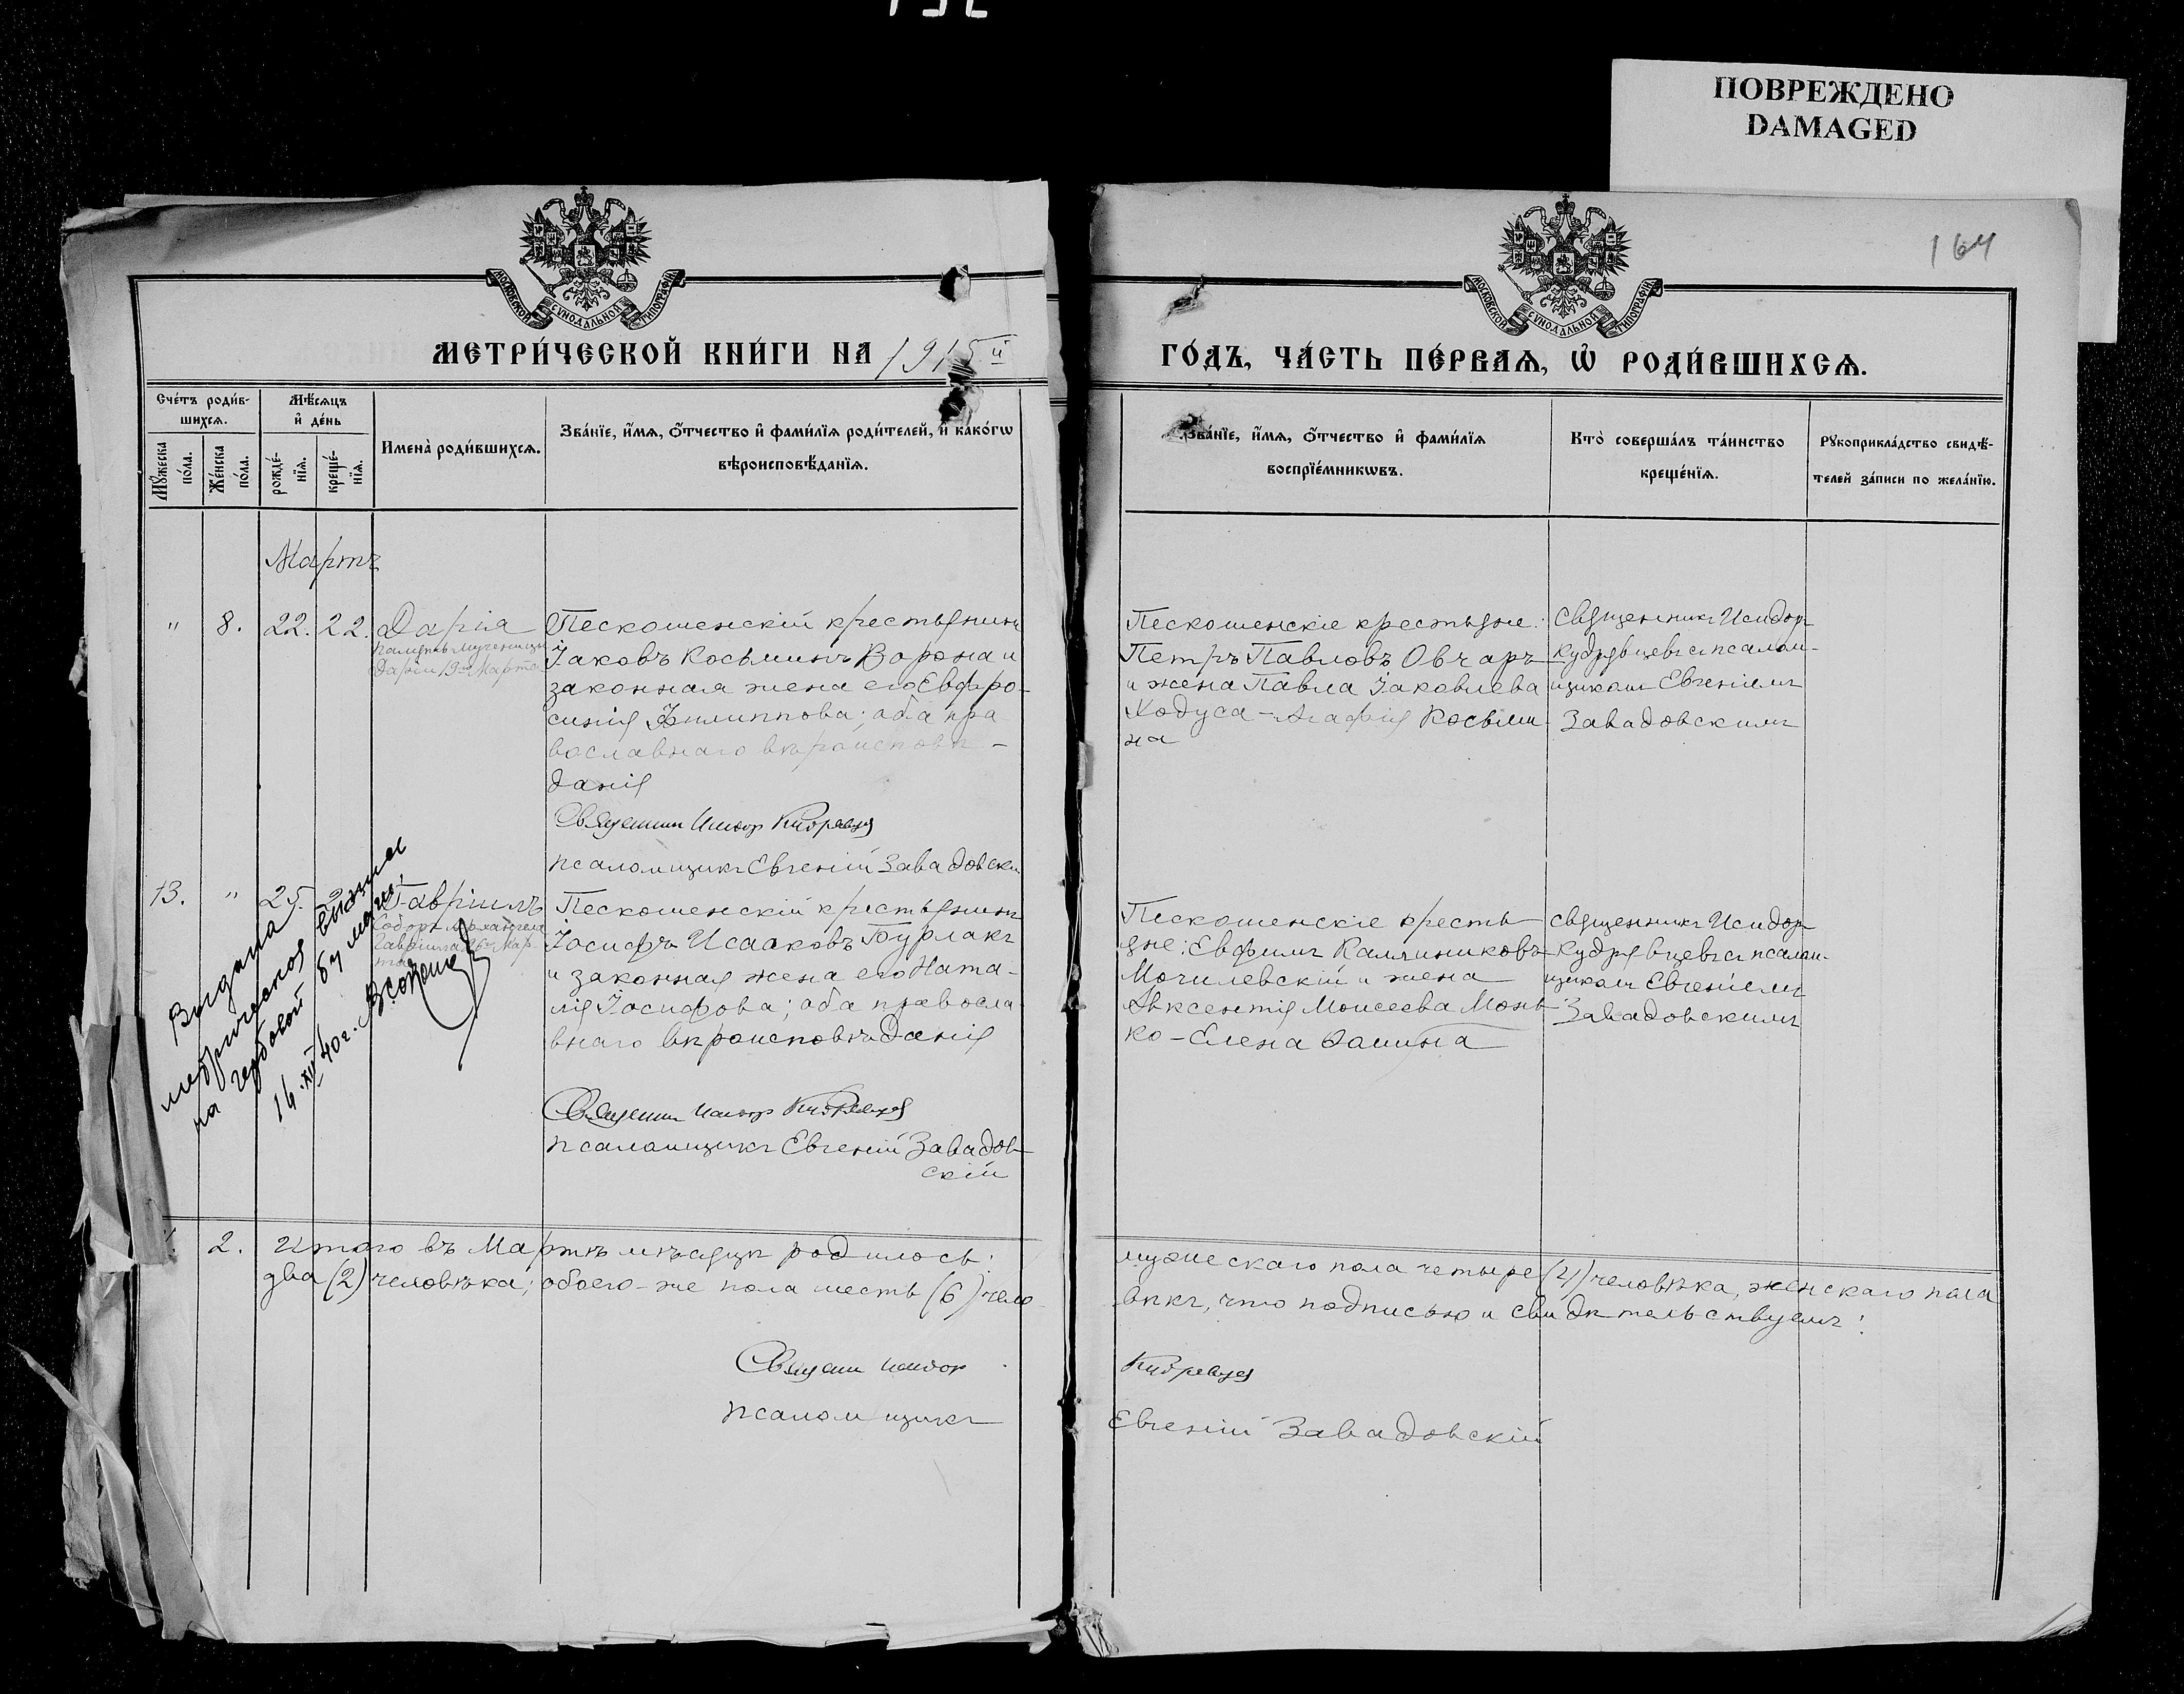 ПОВРЕЖДЕНО
DAMAGED
164
МОСКОВСКОЙ СѴНОДАЛЬНОЙ ТИПОГРАФІИ
МОСКОВСКОЙ СѴНОДАЛЬНОЙ ТИПОГРАФІИ
МЕТРИ́ЧЕСКОЙ КНИ́ГИ НА 1915 й
ГО́ДЪ, ЧА́СТЬ ПЕ́РВАЯ, Ѡ҆ РОДИ́ВШИХСЯ.
Сче́тъ роди́в-
шихся.
Мѣ́сяцъ
и҆ де́нь
Мꙋ́жеска
по́ла.
Же́нска
по́ла.
рожде́-
нїя.
креще́-
нїя.
Имена̀ роди́вшихся.
Зва́нїе, и҆́мя, ѻ҆́тчество и҆ фами́лїя роди́телей, и҆ како́гѡ
вѣроисповѣ́данїя.
Зва́нїе, и҆́мя, ѻ҆́тчество и҆ фами́лїя
воспрїе́мникѡвъ.
Кто̀ соверша́лъ та́инство
креще́нїя.
Рꙋкоприкла́дство свидѣ́-
телей за́писи по жела́нїю.
Мартъ
" 8. 22. 22. Дарія
память мученицы
Даріи 19го Марта
Пескошенскій крестьянинъ
Іаковъ Косьминъ Ворона и
законная жена его Евфро-
синія Филиппова; оба пра
вославнаго вѣроисповѣ-
данія
Священникъ Исидоръ Кудрявцев
Псаломщикъ Евгеній Завадовскі
Пескошенскіе крестьяне:
Петръ Павловъ Овчаръ
и жена Павла Іаковлева
Ходуса - Агафія Косьми-
на
Священникъ Исидоръ
Кудрявцевъ съ псалом-
щикомъ Евгеніемъ
Завадовскимъ
13. " 25. Гавріилъ
Соборъ Архангела
Гавріила 26го Мар-
та
Пескошенскій крестьянинъ
Іосифъ Исааковъ Бурлакъ
и законная жена его Ната-
лія Іосифова; оба правосла-
внаго вѣроисповѣданія
Священникъ Исидоръ Кудрявцев
Псаломщикъ Евгеній Завадов-
скій
Пескошенскіе кресть-
яне: Евфимъ Каллиниковъ
Могилевскій и жена
Авксентія Моисеева Монь-
ко - Елена Фомина
Священникъ Исидоръ
Кудрявцевъ съ псалом-
щикомъ Евгеніемъ
Завадовскимъ
Выдана
метрическая выписка
на гербовой бумаге
14.XII 40г.
2. Итого въ Мартѣ мѣсяцѣ родилось: мужескаго пола четыре (4) человѣка, женскаго пола
два (2) человѣка; обоего-же пола шесть (6) чело-
вѣкъ, что подписью и свидѣтельствуемъ:
Священникъ Исидоръ Кудрявцев
Псаломщикъ Евгеній Завадовскій